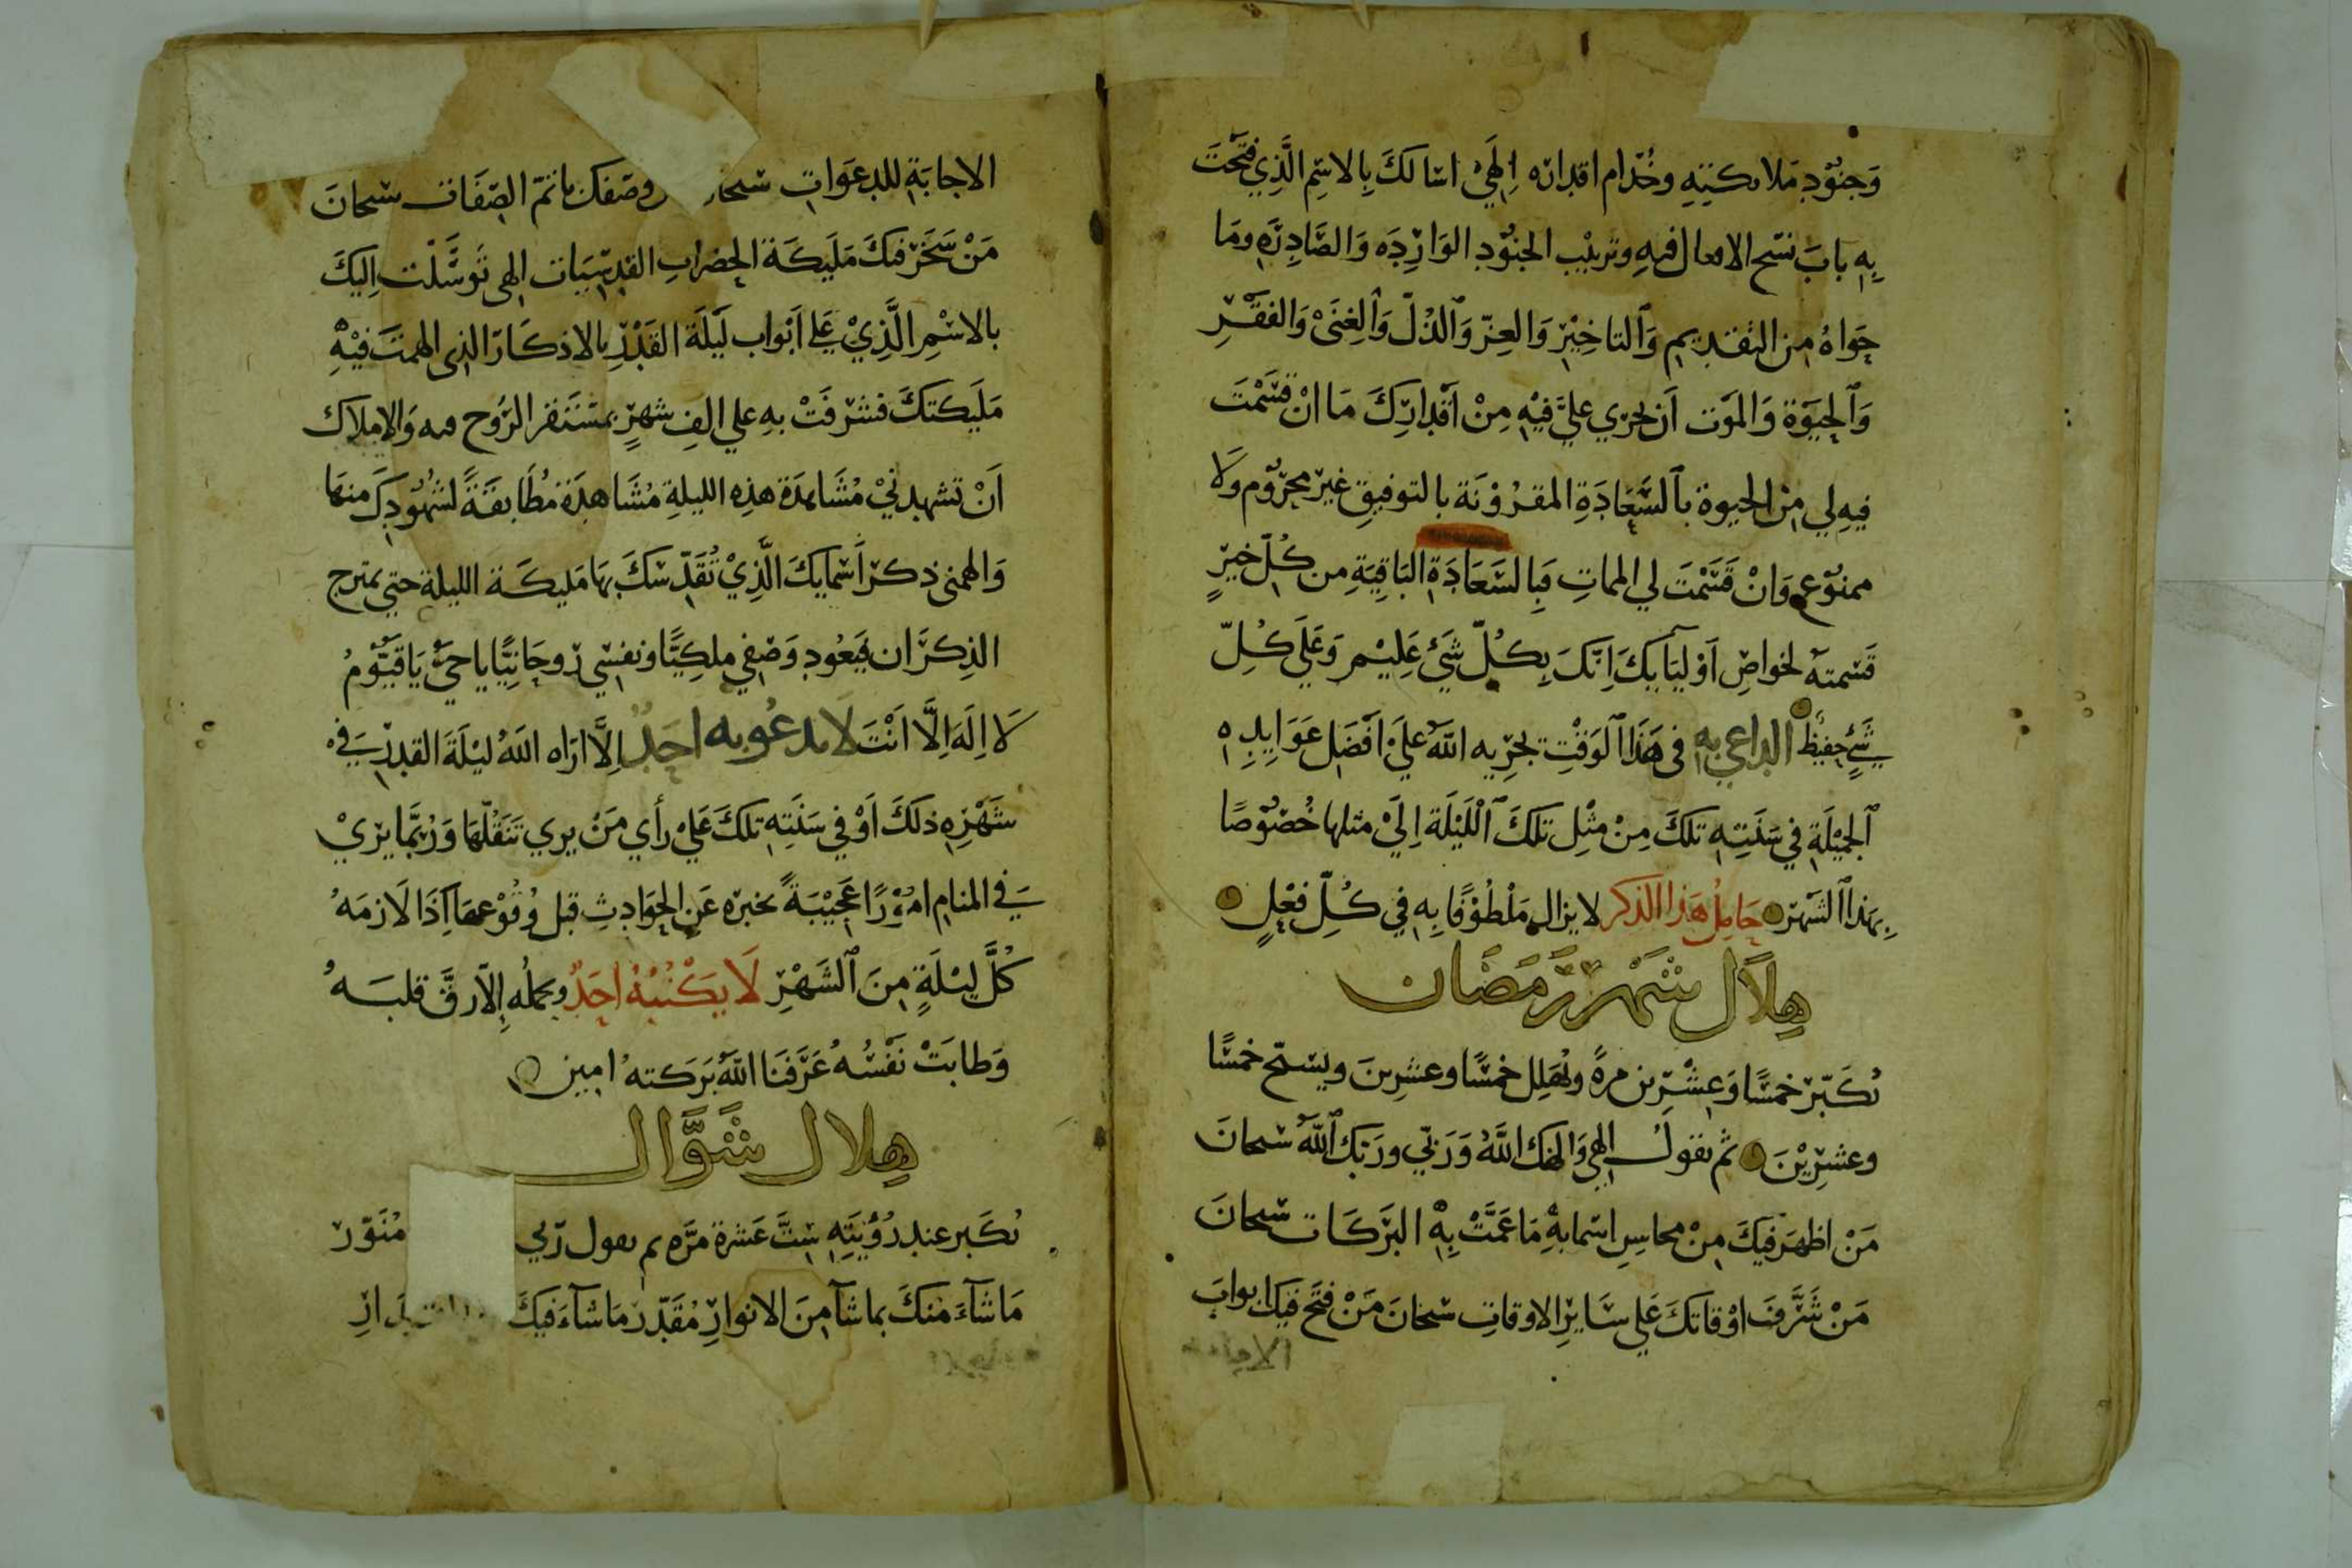 وَجنُوْدِ مَلائكتِهِ وخُدّام اقداره اِلَهِيْ اسْالكَ بِالاسْمِ الَّذِي فتَحْتَ
بِهِ بابَ نسْخ الافعال فيهِ وترتيْب الجنُوْدِ الوَارِدَه وَالصَّادِرَهِ ومَا
حَوَاهُ مِن التقديمِ وَالتاخِيْرِ وَالعِزّ وَالذّلّ وَالغِنَىْ وَالفقْرِ
وَالحيَوٰة وَالموَت اَن تجْرِي عليَّ فيْهِ مِنْ اَقْدارِكَ مَا اِنْ قسَمْتَ
فيهِ لي مِن الحيوة بالسَّعَادَةِ المقرُوْنَة بالتوفيقِ غيرَ محرُوْم وَلَا
ممنُوْع وَانْ قَسَمْتَ لي المماتِ فَبِالسَّعَادَةِ البَاقِيَةِ مِن كُلّ خيْرٍ
قَسَمتهُ لخواصِ اَوْليَآيكَ اِنّكَ بِكُلّ شَيْء عَلِيْم وَعَلَي كُلّ
شَيْءٍ حفِيْظ الداعي بِهِ في هَذَا الوَقْتِ يجْرِيه اللّهُ عَلَيْ اَفْضَلِ عَوَايِدِهِ
الجمِيْلَةِ فِي سَنَتِهِ تلكَ مِنْ مثْلِ تلكَ اللَّيْلَة اِلَيْ مثلها خُصُوْصًا
بِهَذا الشَهْر حَامِلُ هَذا الذكر لا يزال مَلْطُوْفًا بِهِ فِي كُلّ فعْلٍ
هِلَال شَهْر رَمَضَان
تُكَبّر خمسًا وَعِشْرِين مرةً وتُهَلل خمسًا وعشرِينَ ويسبّح خمسًا
وعشرِيْنَ ثم تقول الهِي وَالهكَ اللّهُ وَرَبّي وربّك اللّهُ سبحانَ
مَنْ اظهَر فيكَ مِنْ محاسِنِ اسمايهِ مَا عَمَّتْ بِهِ البَرَكَات سبحانَ
مَنْ شَرَّفَ اوْقاتكَ عَلي سَايرِ الاوقاتِ سبحانَ مَنْ فتَح فيكَ ابوابَ
الاجابة
الاجابَةِ للدعَوَاتِ سبحان وصفك باتمّ الصّفَات سبحانَ
مَنْ سَخّرَ فيكَ مَلَيكَة الحضراتِ القدسِيَات الهي تَوسَّلْت اِليكَ
بالاسْمِ الَّذِيْ عَلي اَبْواب لَيْلَة القَدْرِ بالاذكَارِ الذي الهمتَ فيْهِ
مَلَيكتكَ فشرفَتْ بهِ علي الفِ شهرٍ بمسْتَقر الرُوح فيه وَالاملاك
اَنْ تَشهدنيْ مُشَاهدَة هذِه الليلةِ مُشَاهدَة مُطَابقَةً لشهُوْدِكَ منها
وَالهمني ذِكر اَسْمايكَ الَّذِيْ تُقَدّسكَ بهَا مَليكَة الليلة حتي يمتزج
الذِكرَان فيَعُود وَصْفي ملكيًّا ونفسي رُوحَانِيًّا يا حَيُّ يَا قيُّوْمُ
لَا اِلَهَ اِلَّا اَنْتَ لَا يدعُو به احَدٌ اِلَّا ارَاه اللّهُ ليْلَةَ القدرِ فِي
شَهْرِهِ ذلكَ اَوْ فِي سَنَتِهِ تلكَ عَليْ رأي مَنْ يري تَنَقُّلهَا وَرُبَّمَا يريْ
فِي المنامِ امُوْرًا عَجِيْبَةً تخبرهُ عَنِ الحوَادِثِ قبل وُقُوْعهَا اِذَا لَازمَهُ
كُلَّ ليْلَةٍ مِنَ الشَهْرِ لَا يَكْتُبْهُ احَدٌ وحملُه اِلّا رَقَّ قلبَهُ
وَطابَتْ نَفْسُهُ عَرَّفَنَا اللّهُ بَرَكتهُ امين
هِلال شَوَّال
تُكَبر عند رُؤيَتِهِ سِتَّ عَشرة مَرّه ثم تقول رَبي مُنَوّر
مَا شَآءَ منكَ بما شآ مِنَ الانوارِ مُقَدّر مَا شآءَ فيكَ